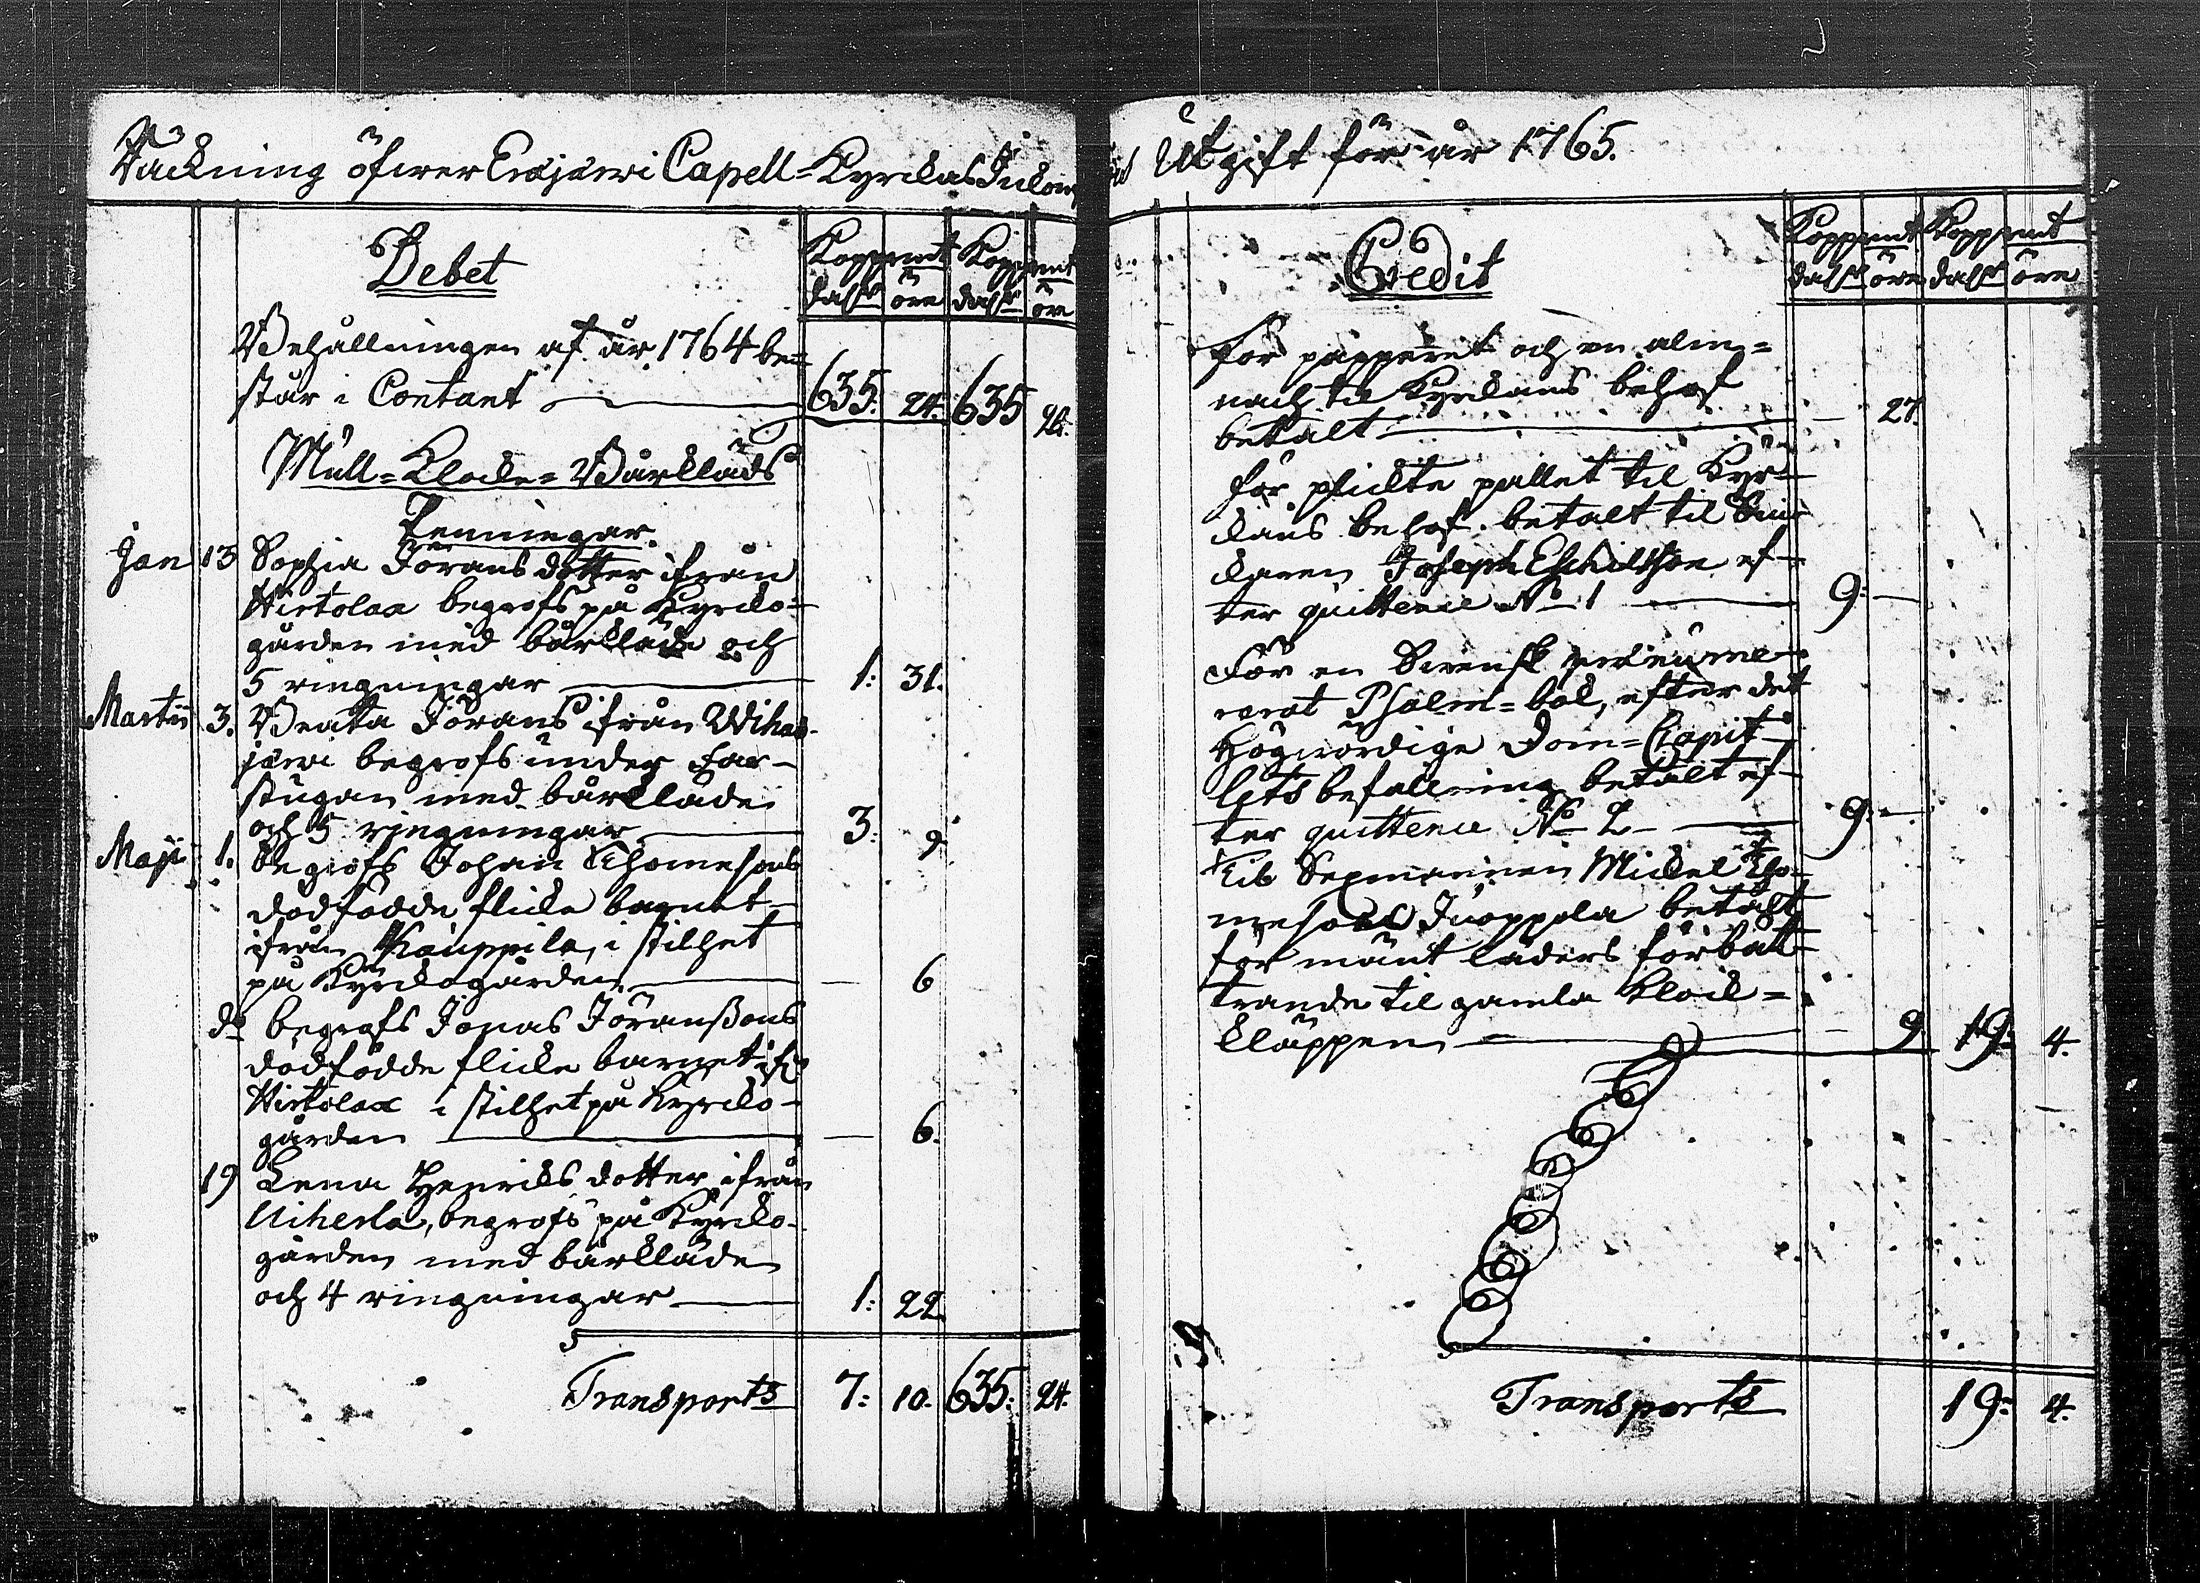 Räckning öfwer Eräjärwi Capell=Kyrckas Inkom
Debet
Koppmt Koppmt
dalr öre dalr öre
Behållningen af år 1764 be=
står i Contant 635. 24. 635 24.
Mull=Klocke=Bårklädes
Penningar.
Jan 13 Sophia Jörans dotter ifrån
Hirtolax begrofs på Kyrcko=
gården med bårkläde och
5 ringningar 1: 31.
Martii 3. Beata Jörans ifrån Wihas-
järwi begrofs under Far-
stugan med bårkläde
och 5 ringningar 3: 9
Maji 1. begrofs Johan Thomesons
dödfödde flicke barnet
ifrån Kauppila, i stilhet
på Kyrckogården 6
do begrofs Jonas Jöranßons
dödfödde flicke barnet ifr
Hirtolax i stilhet på Kyrcko-
gården 6.
19 Lena Henricks dotter ifrån
Uiherla, begrofs på Kyrcko-
gården med bårkläde
och 4 ringningar 1: 22
Transports 7: 10. 635: 24.
och Utgift för år 1765.
Credit
Koppmt Koppmt
dalr öre dalr öre
För papperet och en alm=
nach til Kyrckans behof
betalt 27.
För plickte pallet til Kyr-
ckans behof betalt til Snic
karen Joseph Eschilsson ef-
ter quittence No 1 9:
För en Swensk prænume-
rerat Psalm=bok, efter det
Högwördige Dom=Capit-
lets befallning betalt ef-
ter quittence No 2 9:
Til Sexmannen Mickel Tho-
mesons Juoppola betalt
för mänt läders förbät-
trande til gamla Klock=
kläppen 9 19: 4.
Transports 19: 4.